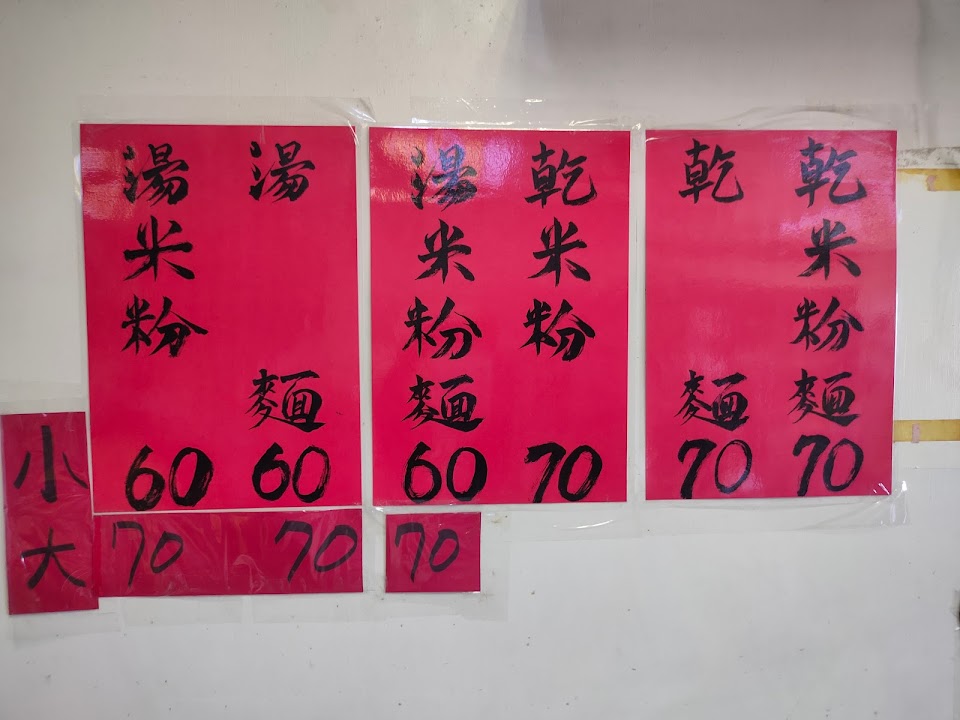 湯米粉 60
湯麵 60
湯米粉麵 60
乾米粉 70
乾麵 70
乾米粉麵 70
小
大 70 70 70